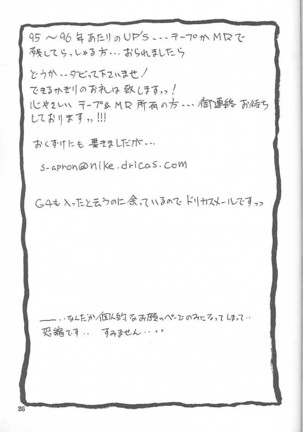 95～96年あたりのUP'S...テープかMRで
残してらっしゃる方...おられましたら
どうか..ダビって下さいませ!
できるかぎりのお礼は致しますッ!
心やさしいテープ&MR所有の方...御連絡お待ち
しておりますッ!!!
おくづけにも書きましたが...
s-apron@nike.dricas.com
G4も入ったと云うのに余っているのでドリカスメールですッ
――..なんだか個人的なお願いページのみになってしまって..
恐縮です.. すみません....
28